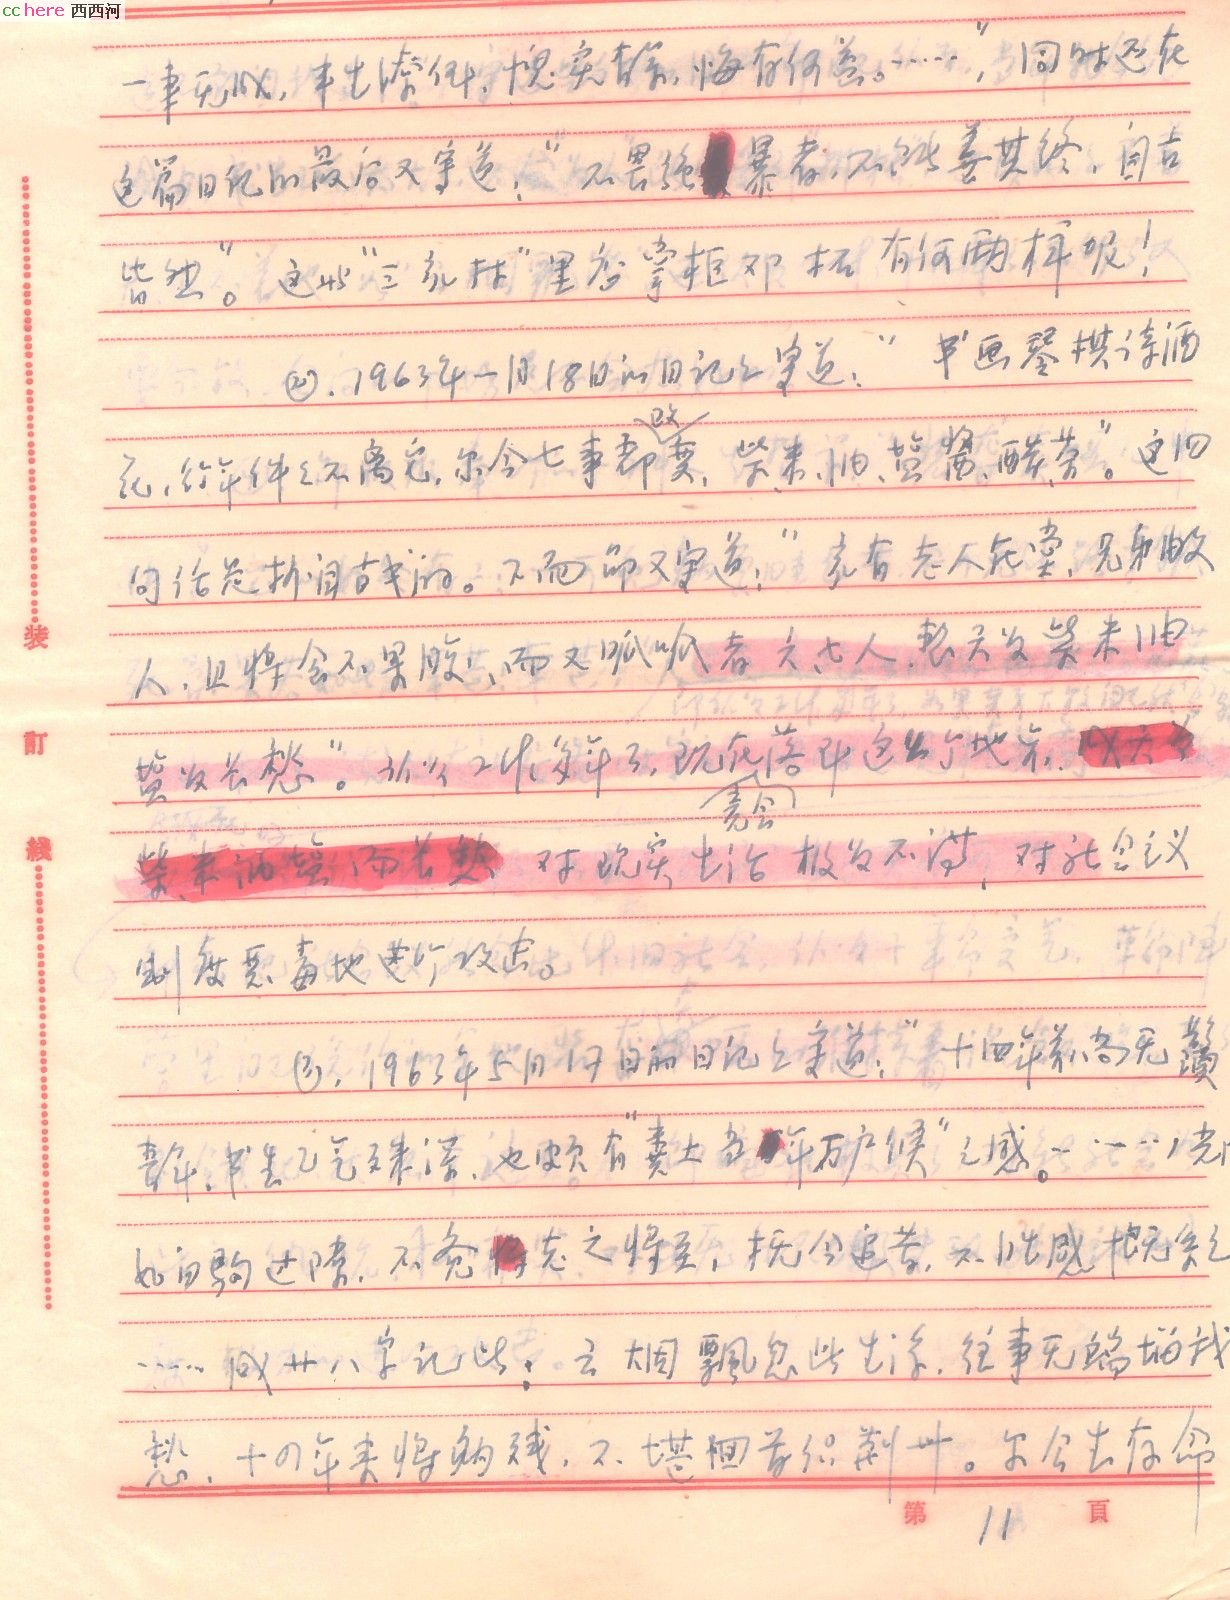 cchere 西西河
一事无成,事出liao,愧实有余,悔有何益。……",同时还在
这篇日记的最后又写道:"不畏强暴者,不能善其终,自古
皆然"。这些"三家村"黑店掌柜邓拓有何两样呢!
②.1963年一月18日的日记上写道:"书画琴棋诗酒
花,当年件件不离它,尔今七事都改变,柴、米、油、盐、酱、醋、茶"。这旧
句话是指自我的。下面却又写道:"家有老人在堂,兄弟
人,且将食不果腹,而又呱呱者六七人,整天为柴米油
盐发长愁"。工作多年了,现在落到这个地步,
柴米油盐而长愁 竟会对现实生活极为不满,对社会主义
制度恶毒地进行攻击。
③,1963年5月17日的日记上写道:"十四年前尚无
青年,书生之气未深,也颇有"粪土当年万户侯"之感。……,光阴
如白驹过隙,不觉老之将至,抚今追昔,不胜感慨系之
……成廿八字记此:云烟飘忽此生浮,往事无端增我
愁,十四年来将,不堪回首荆州。尔今生存命
装 訂 綫
第 11 頁